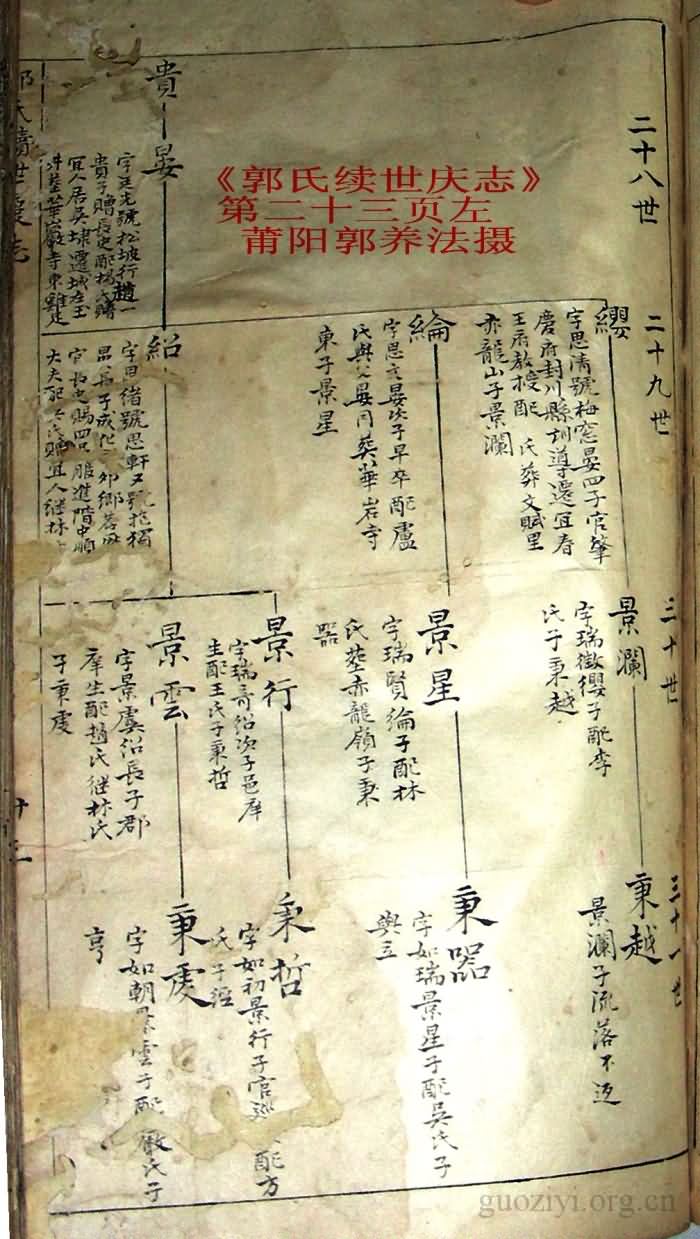 《郭氏续世庆志》
第二十三页左
莆阳郭养法摄
二十八世
貴
晏
字廷光號松坡行趙一
貴子贈長史配楊氏贈
宜人居吳埭遷城左玉
井塟華嚴寺東雞足
二十九世
纓
字思清號梅窓晏四子官肇
慶府封川縣訓導遷宜春
王府教授配 氏葬文賦里
赤龍山子景瀾
綸
字思文晏次子早卒配盧
氏與父晏同葬華岩寺
東子景星
紹
字思緒號思軒又號拖獨
晏長子成化 卯鄉荐
字長史賜四品服進階中順
大夫配 氏贈宜人继林
三十世
景瀾
字瑞徵纓子配李
氏子秉越
景星
字瑞賢綸子配林
氏塟赤龍嶺子秉
器
景行
字瑞奇紹次子邑庠
生配王氏子秉哲
景雲
字景虞紹長子郡
庠生配趙氏继林氏
子秉虔
三十一世
秉越
景瀾子流落不返
秉器
字如瑞景星子配吳氏子
與立
秉哲
字如初景行子官巡 配方
氏子經
秉虔
字如朝景雲子配 氏子
亨
郭氏續世慶志
廿三
guoziyi.org.cn